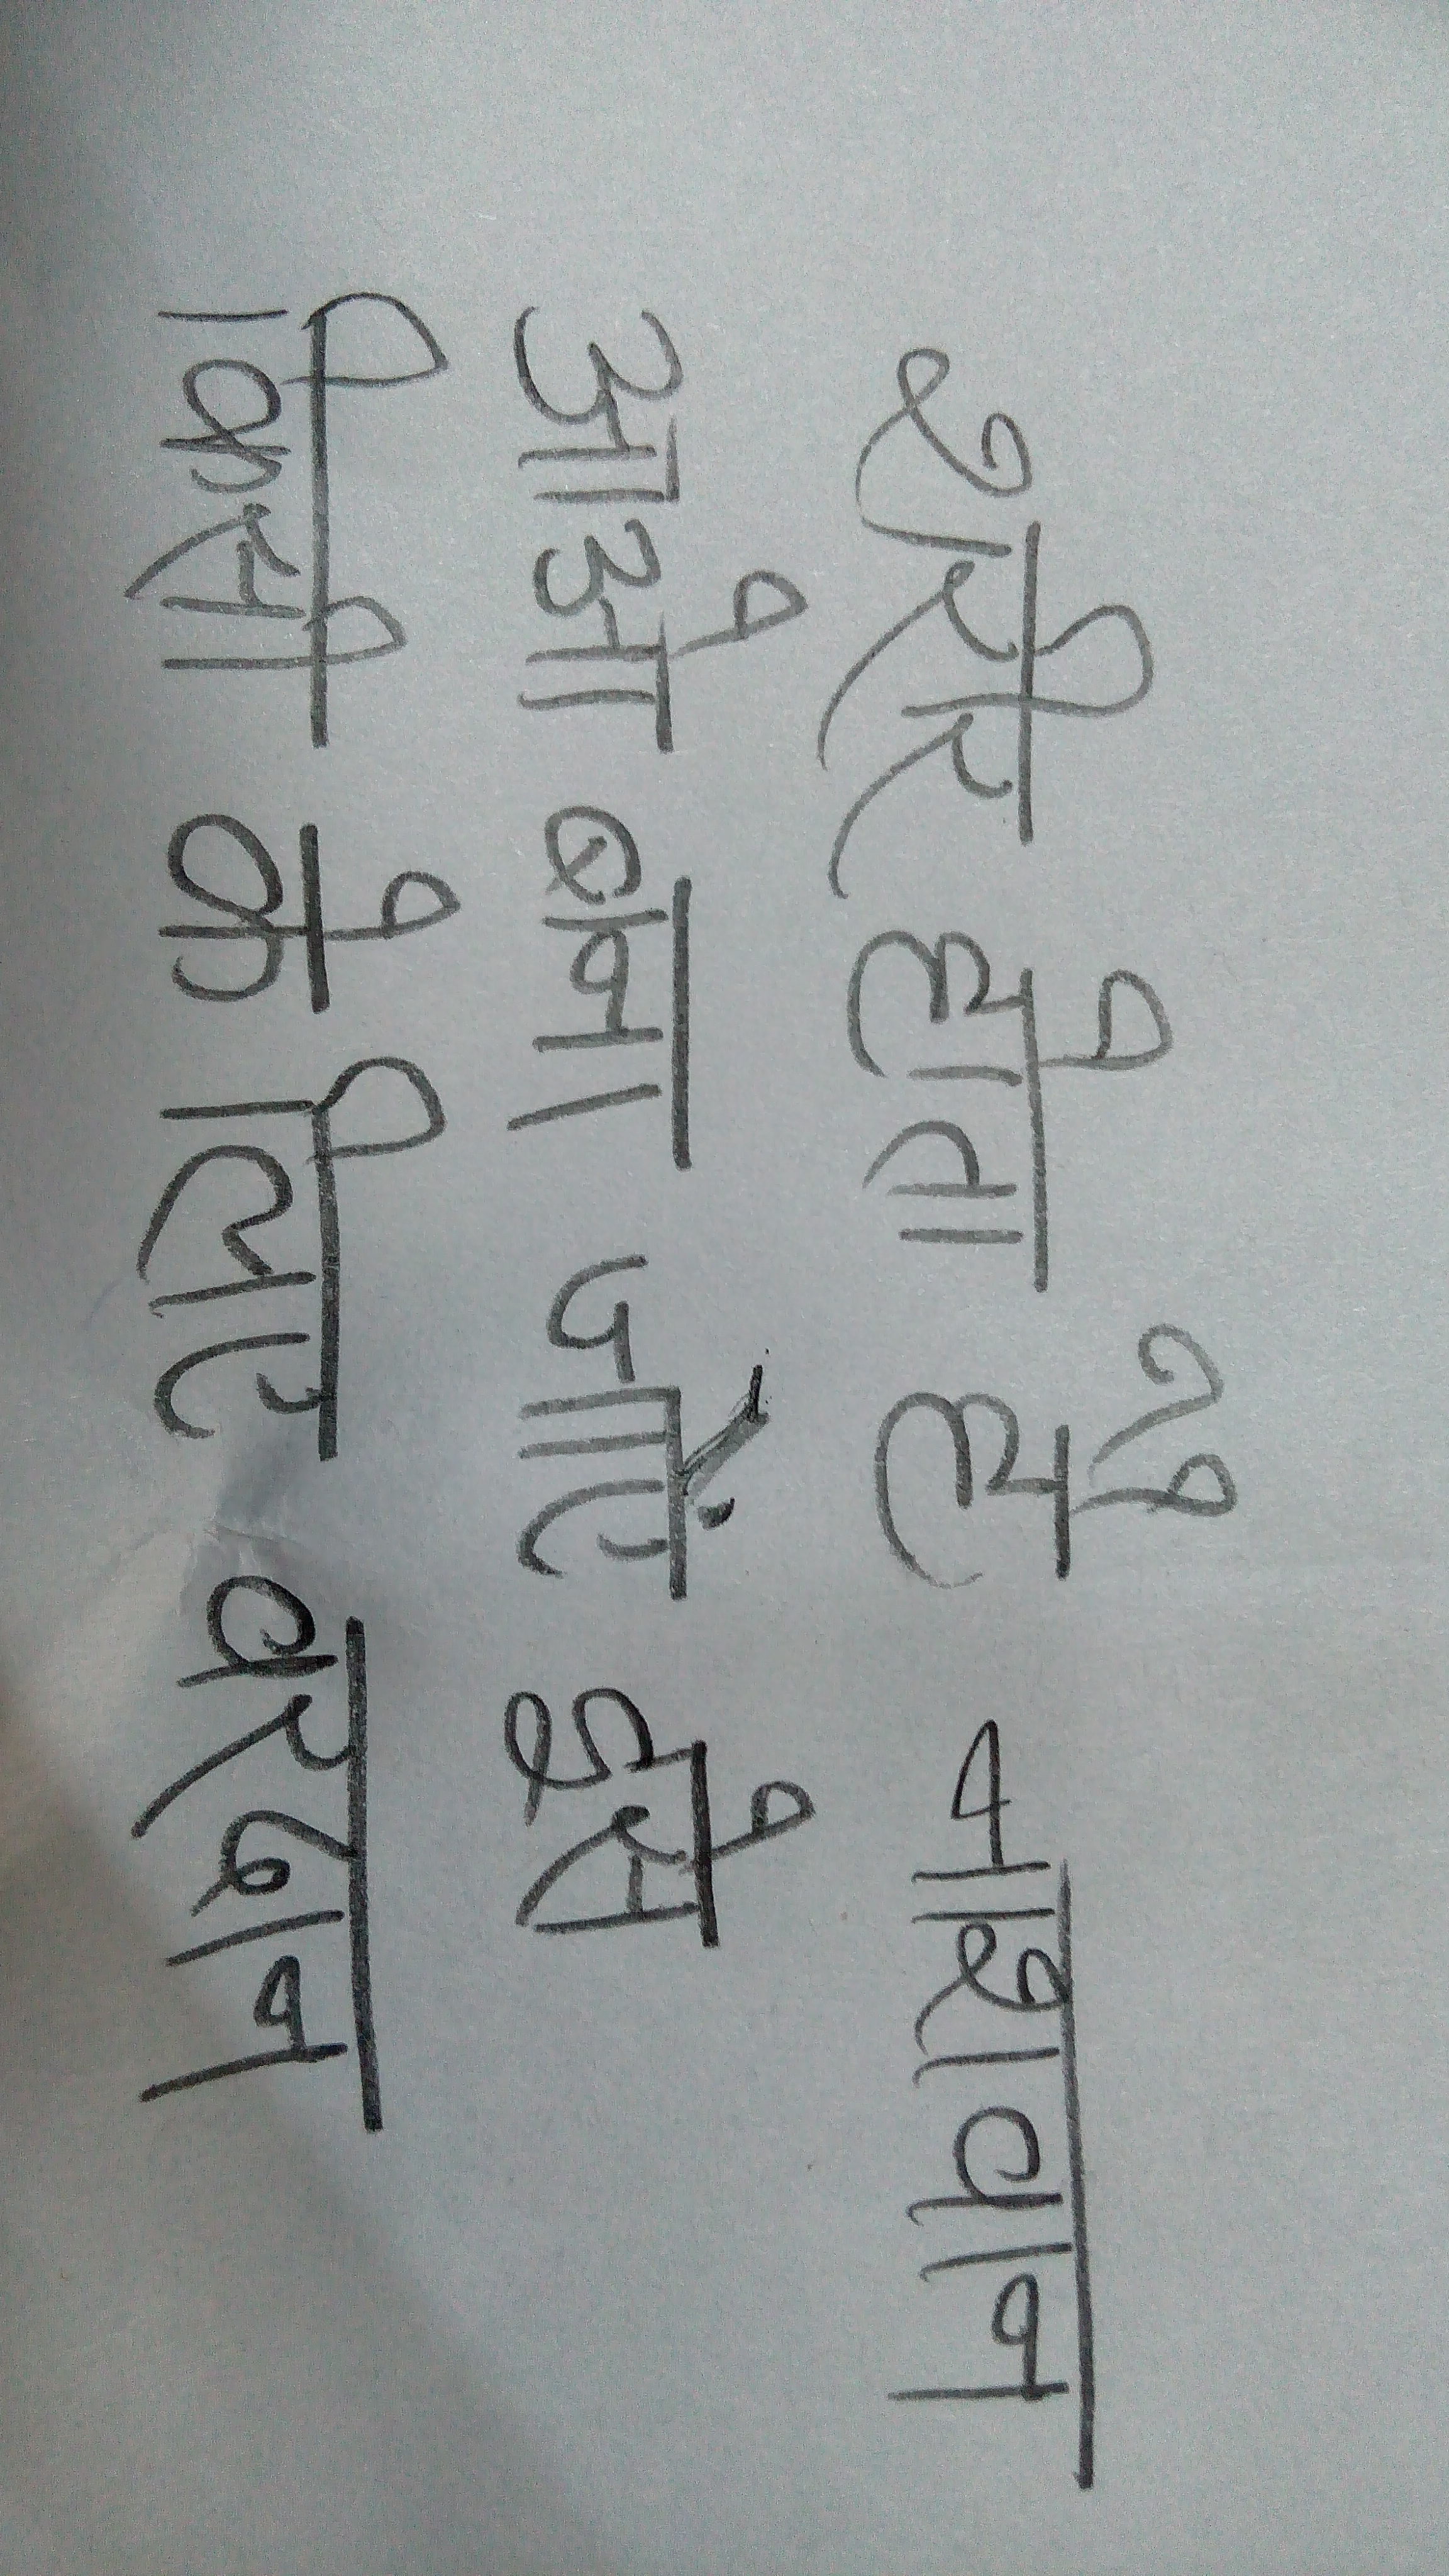 शरीर होता है नाशवान
आओ बना जाएं इसे
किसी के लिए वरदान